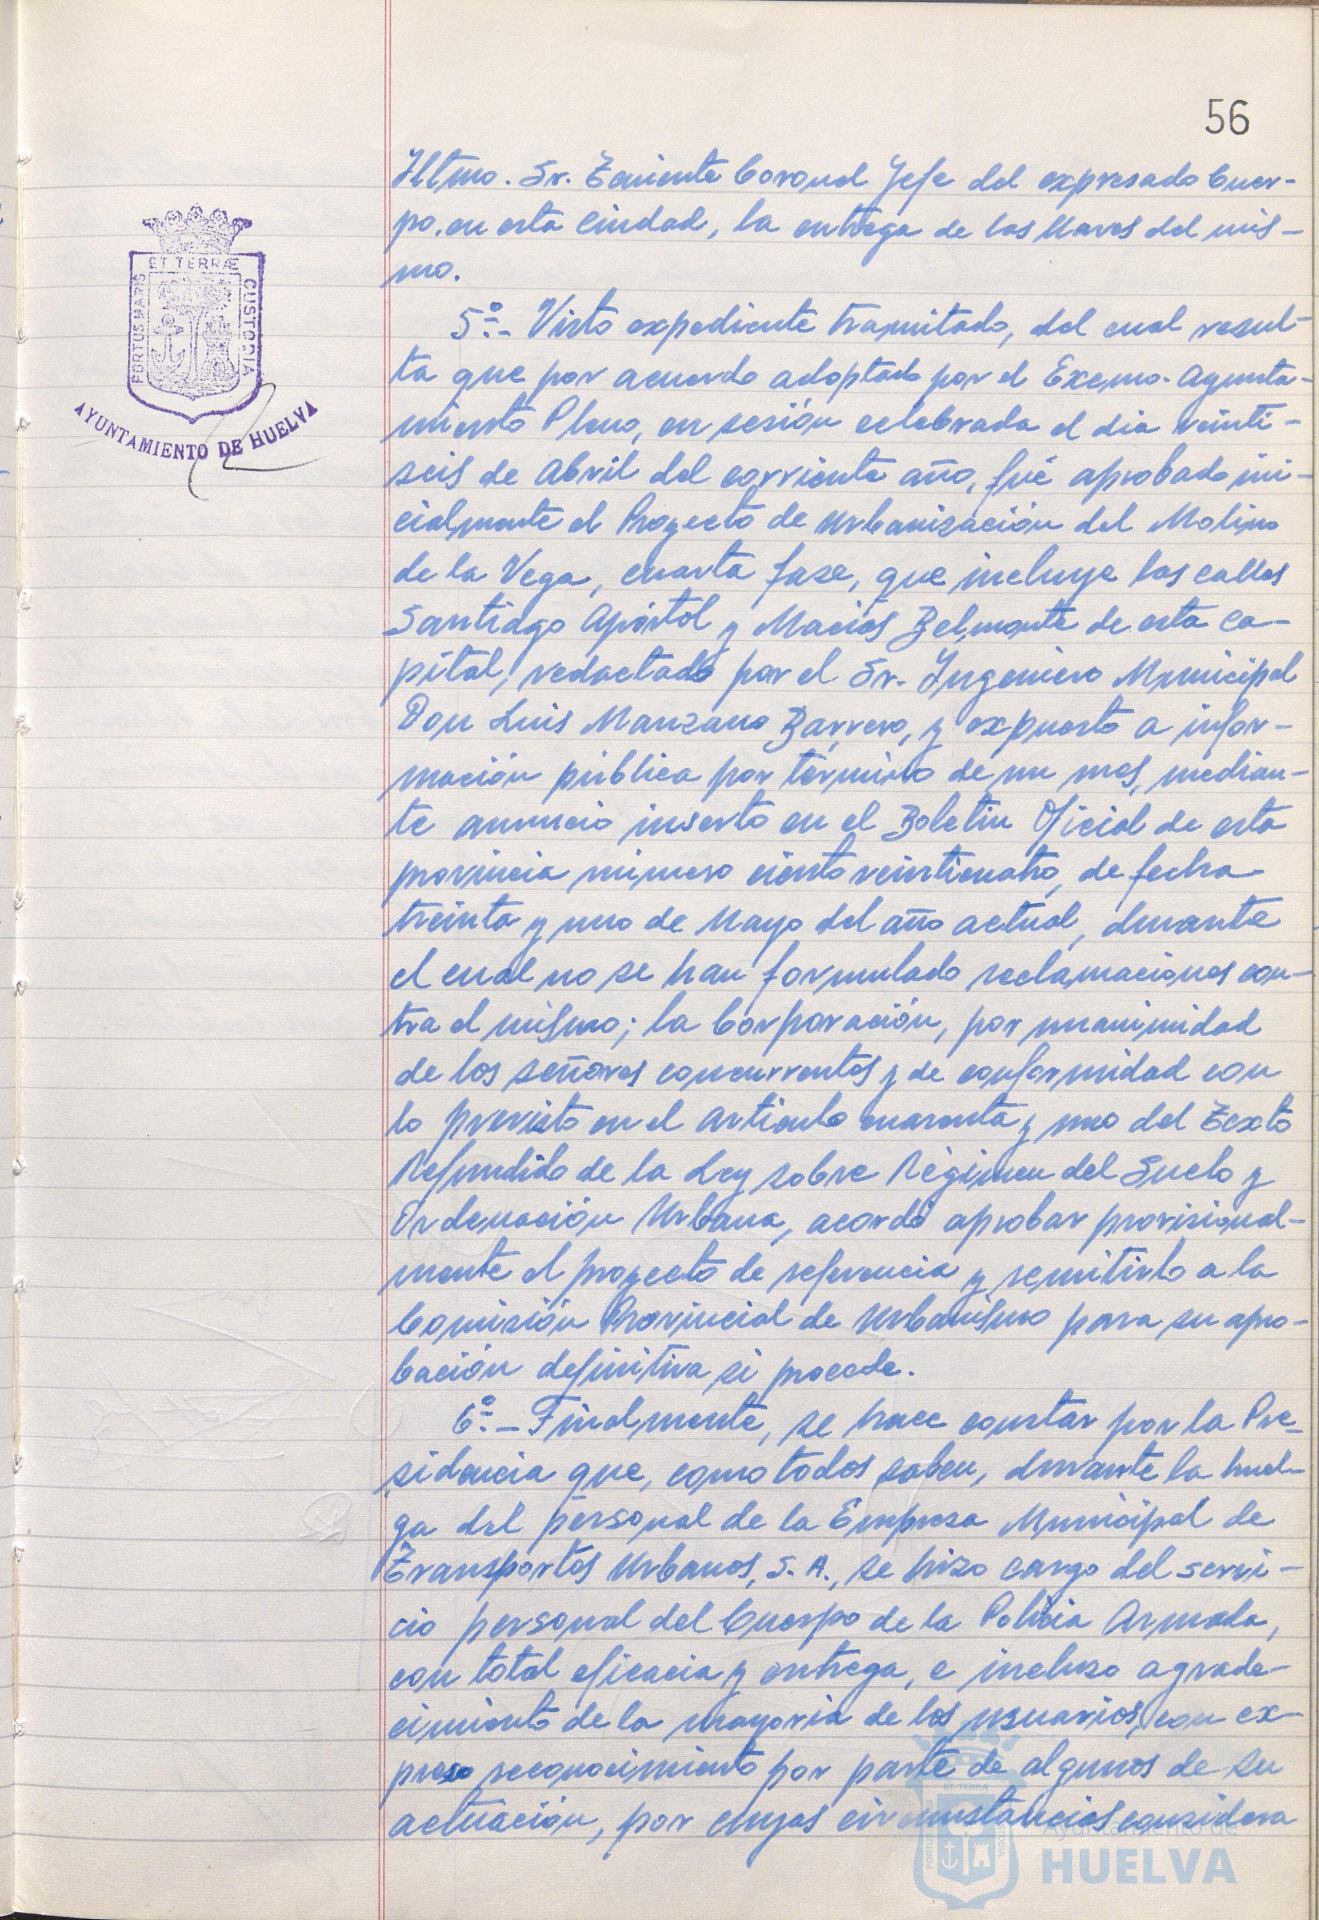 56
Iltmo. Sr. Teniente Coronel Jefe del expresado Cuer-
po, en esta Ciudad, la entrega de las llaves del mis-
mo.
5º.- Visto expediente tramitado, del cual resul-
ta que por acuerdo adoptado por el Excmo. Ayunta-
miento Pleno, en sesión celebrada el dia veinti-
seis de Abril del corriente año, fué aprobado ini-
cialmente el Proyecto de Urbanización del Molino
de la Vega, cuarta fase, que incluye las calles
Santiago Apóstol y Macias Belmonte de esta ca-
pital, redactado por el Sr. Ingeniero Municipal
Don Luis Manzano Barrero, y expuesto a infor-
mación pública por término de un mes, median-
te anuncio inserto en el Boletin Oficial de esta
provincia número ciento veinticuatro, de fecha
treinta y uno de Mayo del año actual, durante
el cual no se han formulado reclamaciones con-
tra el mismo; la Corporación, por unanimidad
de los señores concurrentes y de conformidad con
lo previsto en el articulo cuarenta y uno del Texto
Refundido de la Ley sobre Régimen del Suelo y
Ordenación Urbana, acordó aprobar provisional-
mente el proyecto de referencia y remitirlo a la
Comisión Provincial de Urbanismo para su apro-
bación definitiva si procede.
6º.- Finalmente, se hace constar por la Pre-
sidencia que, como todos saben, durante la huel-
ga del personal de la Empresa Municipal de
Transportes Urbanos, S. A., se hizo cargo del servi-
cio personal del Cuerpo de la Policia Armada,
con total eficacia y entrega, e incluso agrade-
cimiento de la mayoria de los usuarios, con ex-
preso reconocimiento por parte de algunos de su
actuación, por cuyas circunstancias considera
PORTUS MARIS
ET TERRÆ
CUSTODIA
AYUNTAMIENTO DE HUELVA
Ayuntamiento de
HUELVA